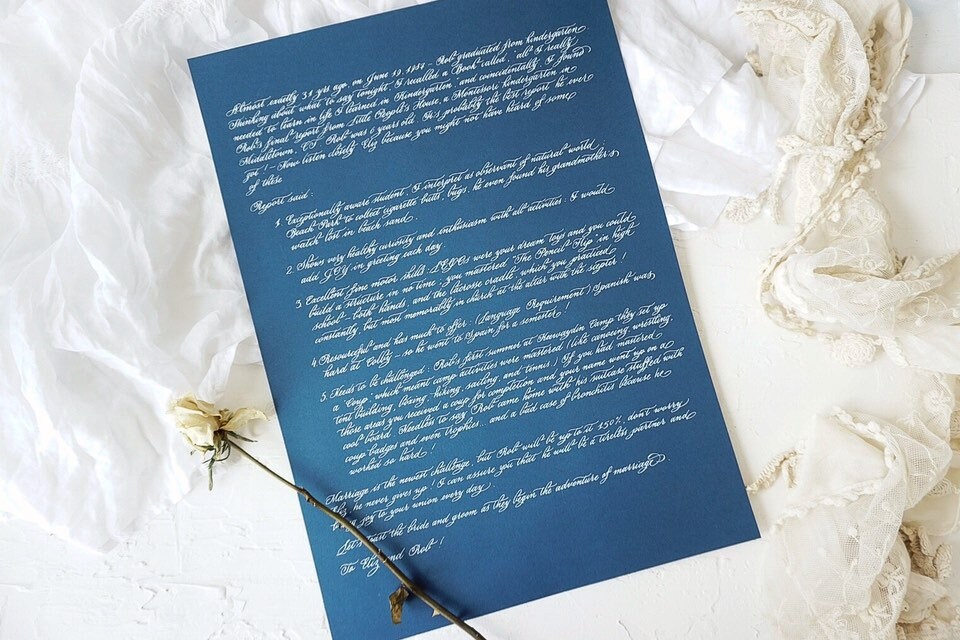 Almost exactly 31 yrs ago on June 19, 1987 - Rob graduated from kindergarten
Thinking about what to say tonight, I recalled a Book called, "all I really
needed to learn in life I learned in Kindergarten," and coincidentally I found
Rob's final report from Little People's House, a Montessori kindergarten in
Middletown, CT. Rob was 6 years old. It's probably the best report he ever
got! - Now listen closely Eliz because you might not have heard of some
of these
Report said:
1. Exceptionally aware student; I interpret as observant of natural world,
Beach Park to collect cigarette butts, bugs, he even found his grandmother's
watch lost in beach sand.
2. Shows very healthy curiosity and enthusiasm with all activities: I would
add JOY in greeting each day
3. Excellent fine motor skills: LEGOs were your dream toys and you could
build a structure in no time; you mastered "The Pencil Flip" in high
school - both hands, and the lacrosse cradle" which you practiced
constantly, but most memorably in church at the altar with the scepter!
4. Resourceful and has much to offer: (Language Requirement) Spanish was
hard at Colby - so he went to Spain for a semester!
5. Needs to be challenged: Rob's first summer at Keewaydin Camp they set up
a "Coup" which meant camp activities were mastered (like canoeing, wrestling,
tent building, boxing, hiking, sailing, and tennis) If you had mastered
those areas you received a coup for completion and your name went up on a
cool board. Needless to say, Rob came home with his suitcase stuffed with
coup badges and even trophies.. and a bad case of bronchitis because he
worked so hard!
Marriage is the newest challenge, but Rob will be up to it 150%, don't worry
he never gives up! I can assure you that he will be a tireless partner and
joy to your union every day.
Let's toast the bride and groom as they begin the adventure of marriage
To Eliz and Rob!